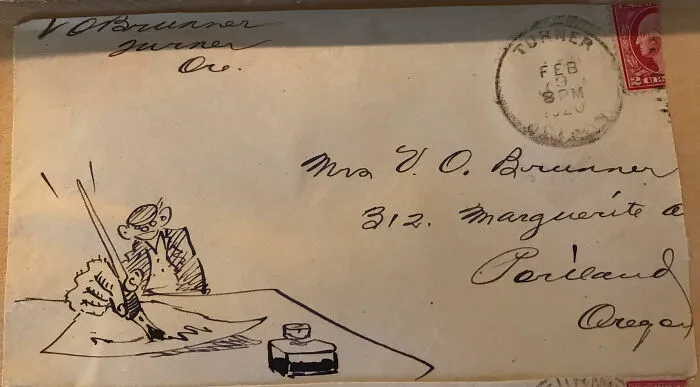 V O Brunner
Turner
Ore.
TURNER
FEB
8 PM
1920
2
Mrs V. O. Brunner
312. Marguerite a
Portland
Oregon